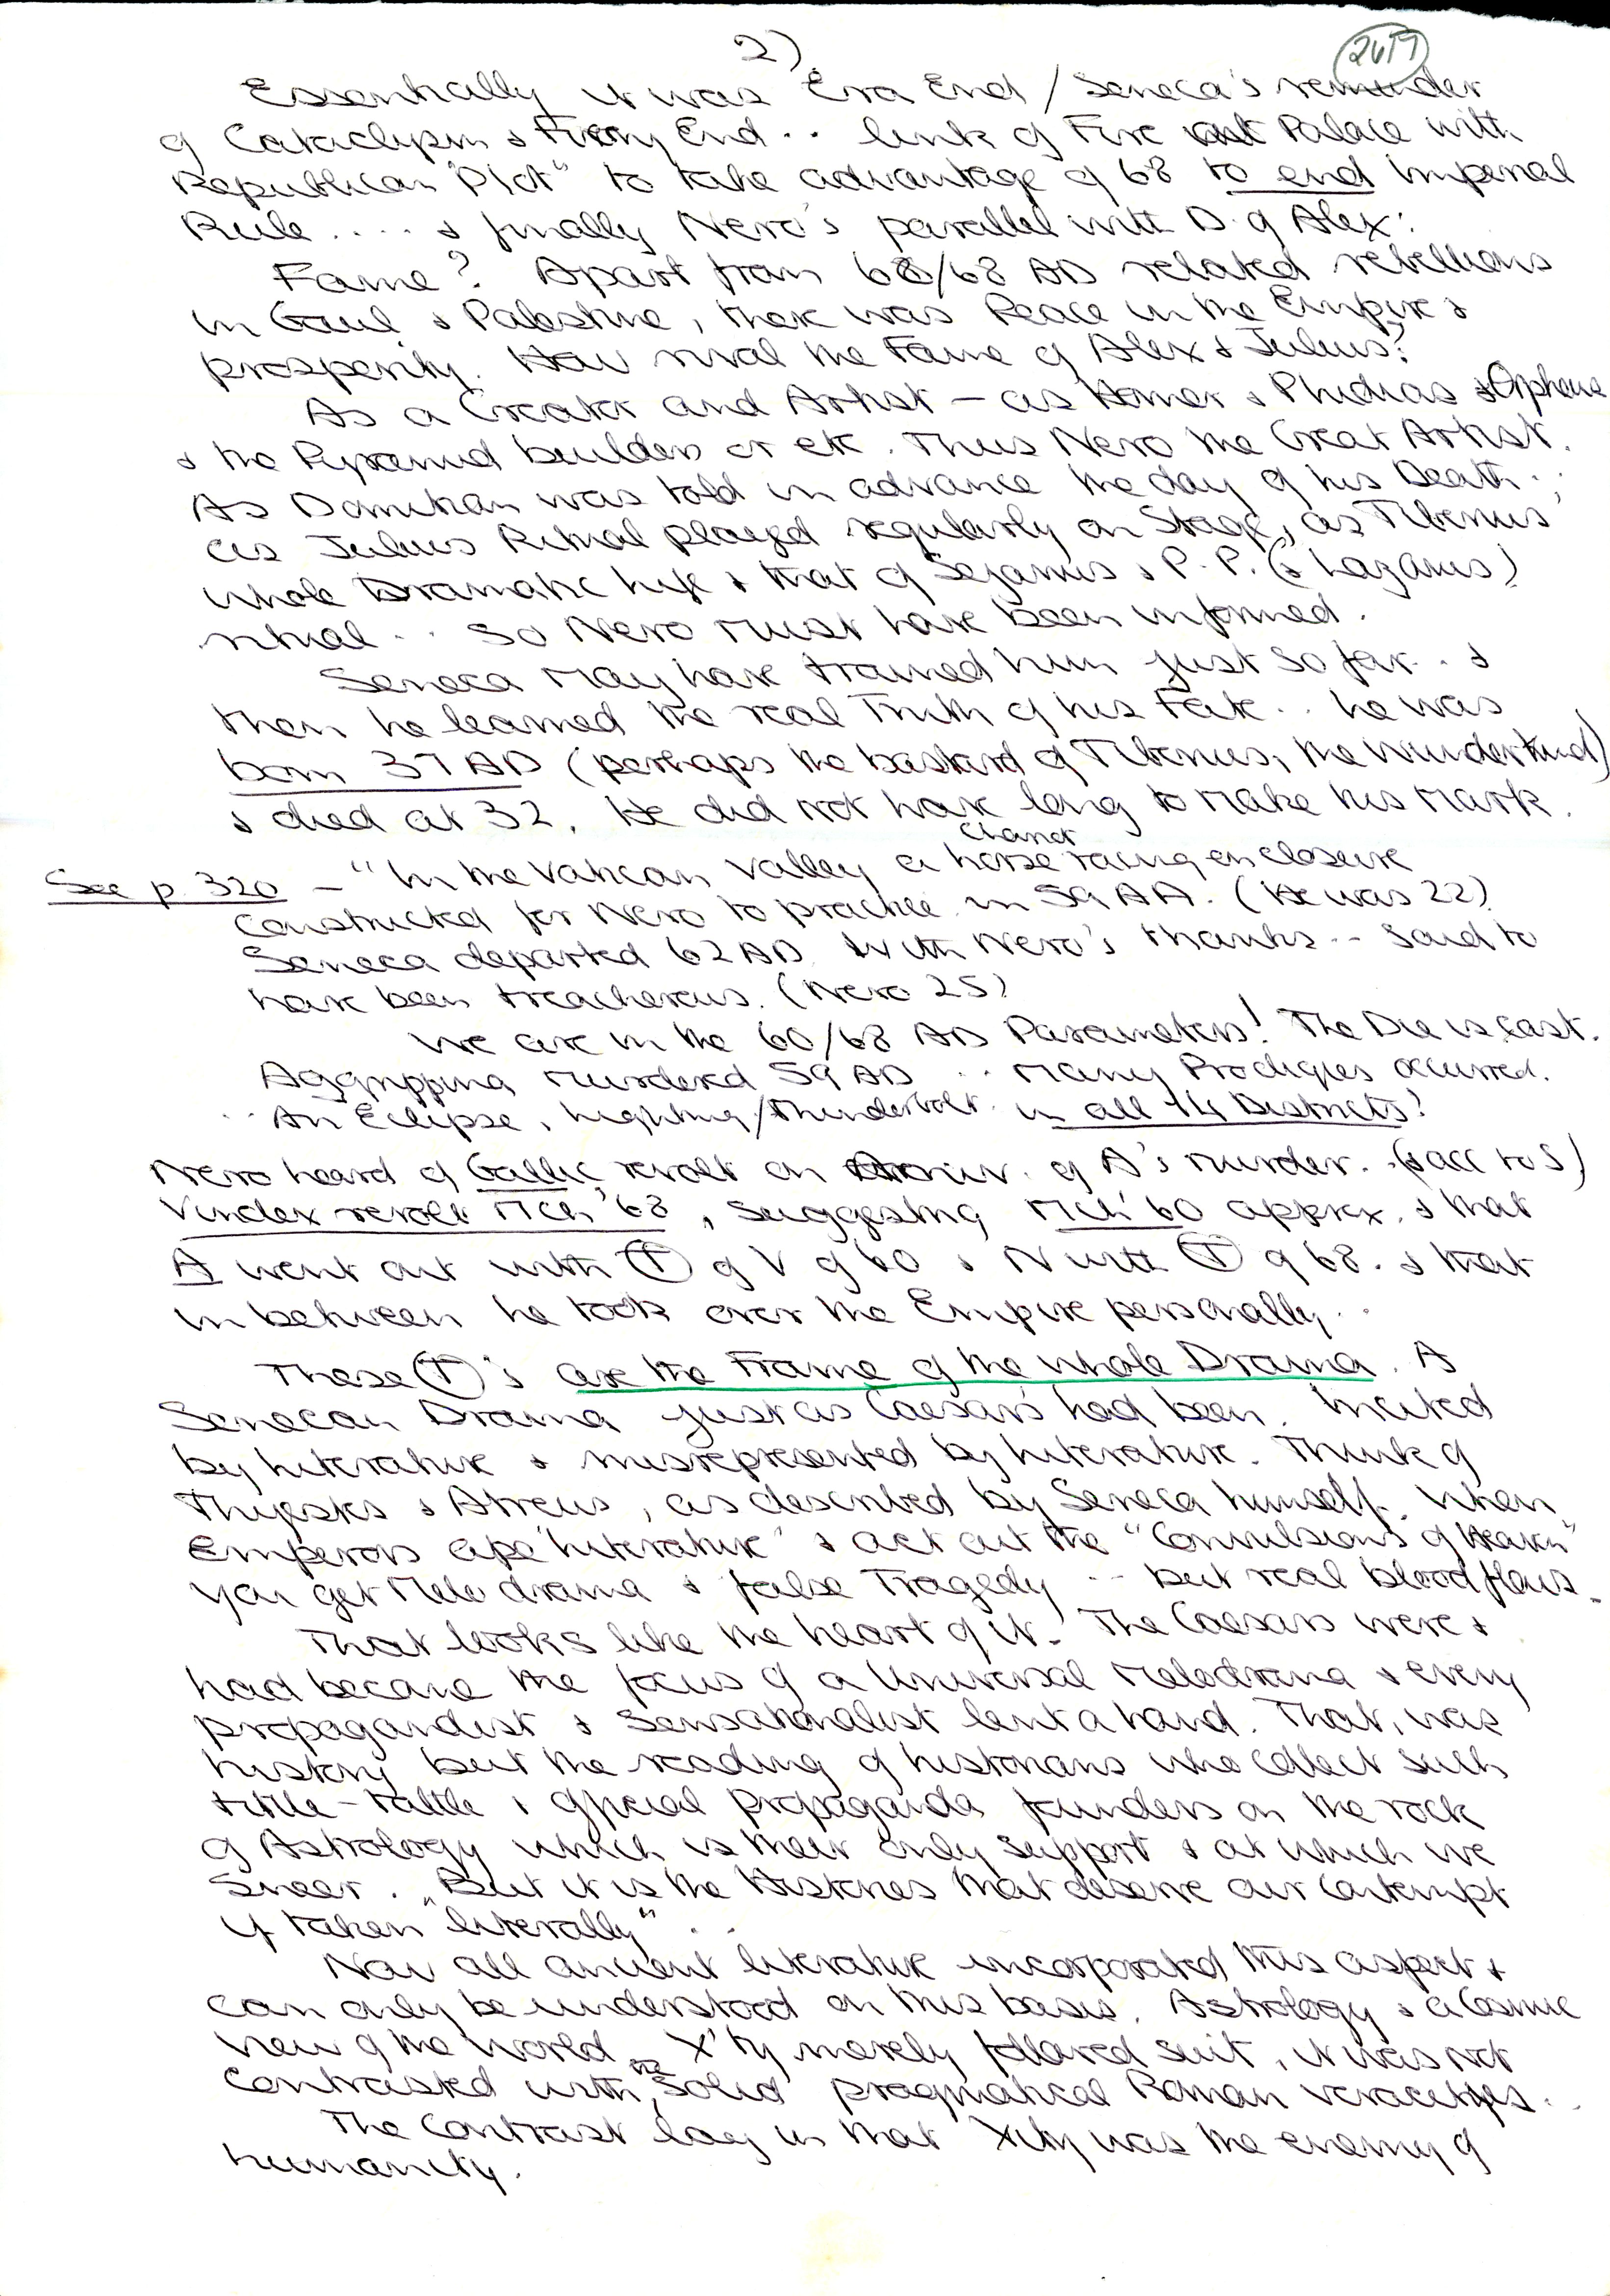 2)
2619
Essentially it was Era End / Seneca's reminder
of Cataclysm & Fiery End .. link of Fire at Palace with
Republican "Plot" to take advantage of 68 to end Imperial
Rule .... & finally Nero's parallel with D. of Alex:
Fame? Apart from 66/68 AD related rebellions
in Gaul & Palestine, there was Peace in the Empire &
prosperity. How rival the Fame of Alex & Julius?
As a Creator and Artist – as Homer & Phidias & Orpheus
& the Pyramid builders or etc. Thus Nero the Great Artist.
As Domitian was told in advance the day of his Death ..
as Julius Ritual played regularly on Stage, as Tiberius'
whole Dramatic life & that of Sejanus & P.P. (& Lazarus)
ritual .. So Nero must have been informed.
Seneca may have trained him just so far .. &
then he learned the real Truth of his Fate .. he was
born 37 AD (perhaps the bastard of Tiberius, the Wunderkind)
& died at 32. He did not have long to make his mark.
Chariot
See p. 320 – "In the Vatican Valley a horse racing enclosure
constructed for Nero to practice in 59 AD. (He was 22)
Seneca departed 62 AD with Nero's thanks .. Said to
have been treacherous. (Nero 25)
We are in the 60/68 AD Parameters! The Die is cast.
Aggrippina murdered 59 AD .. Many Prodigies occurred.
.. An Eclipse, lighting/thunderbolt in all 14 Districts!
Nero heard of Gallic revolt on Anniv. of A's murder. (acc to S)
Vindex revolt Mch '68, suggesting Mch '60 apprx. & that
A went out with T of V of 60 & N with T of 68. & that
in between he took over the Empire personally ..
These T's are the Frame of the whole Drama. A
Senecan Drama just as Caesar's had been. Incited
by literature & misrepresented by literature. Think of
Thyestes & Atreus, as described by Seneca himself. When
Emperors ape 'literature' & act out the "Convulsions of Heaven"
you get Melodrama & false Tragedy .. but real blood flows.
That looks like the heart of it. The Caesars were &
had become the focus of a Universal Melodrama & every
propagandist & Sensationalist lent a hand. That, was
history but the reading of historians who collect such
tittle-tattle & official propaganda founders on the rock
of Astrology which is their only support & at which we
sneer. But it is the Histories that deserve our contempt
if taken "literally" ..
Now all ancient literature incorporated this aspect &
can only be understood on this basis. Astrology & a Cosmic
View of the World. X'ty merely followed suit, it was not
contrasted with the solid pragmatical Roman veracities ..
The Contrast lay in that Xity was the enemy of
humanity.